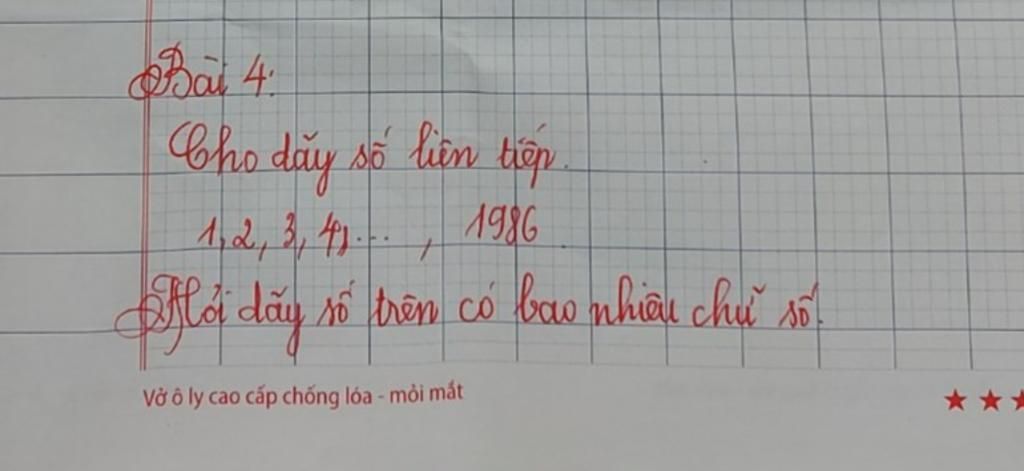 Bài 4:
Cho dãy số liên tiếp.
1, 2, 3, 4, ... , 1986
Hỏi dãy số trên có bao nhiêu chữ số.
Vở ô ly cao cấp chống lóa - mỏi mắt